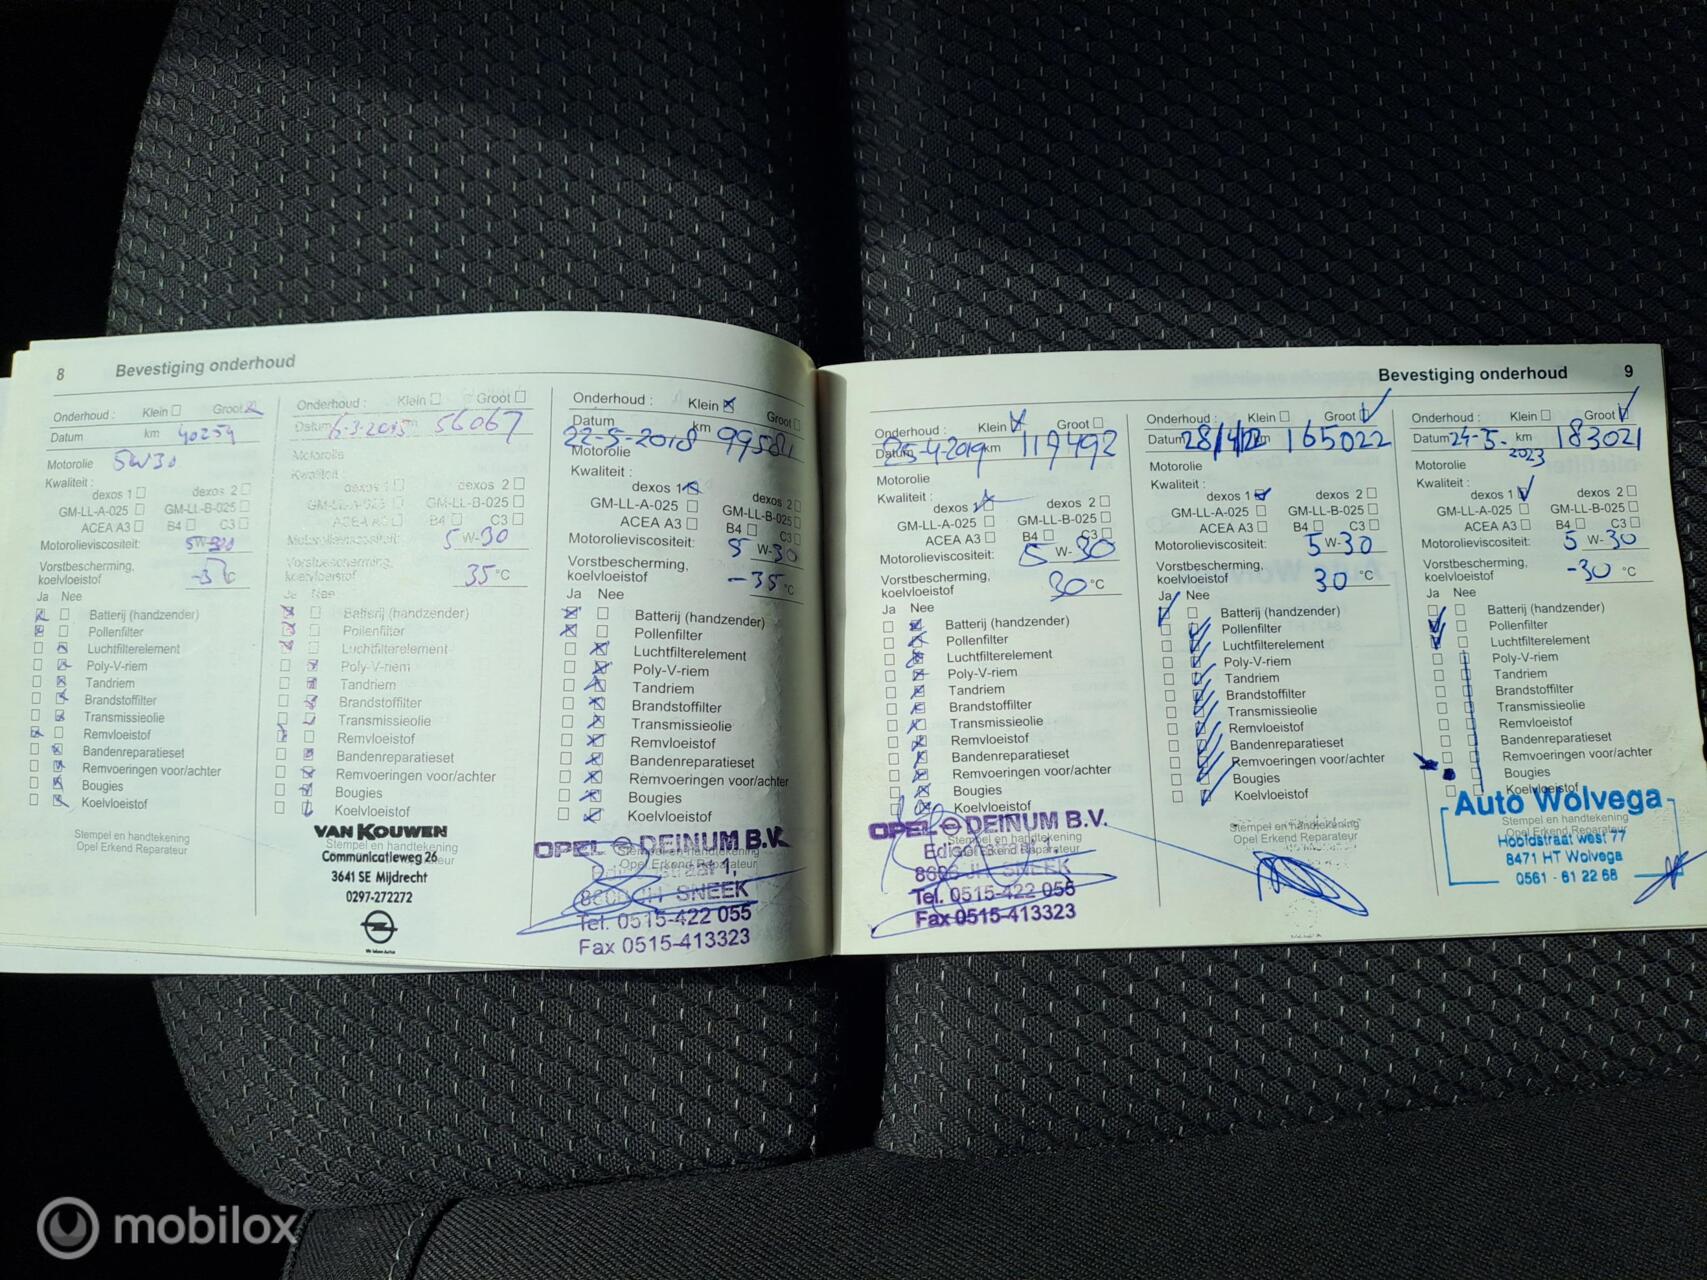 8 Bevestiging onderhoud
Onderhoud : Klein Groot
Datum km 40254
Motorolie 5W30
Kwaliteit :
dexos 1 dexos 2
GM-LL-A-025 GM-LL-B-025
ACEA A3 B4 C3
Motorolieviscositeit: 5W-30
Vorstbescherming,
koelvloeistof °C
Ja Nee
Batterij (handzender)
Pollenfilter
Luchtfilterelement
Poly-V-riem
Tandriem
Brandstoffilter
Transmissieolie
Remvloeistof
Bandenreparatieset
Remvoeringen voor/achter
Bougies
Koelvloeistof
Stempel en handtekening
Opel Erkend Reparateur
Onderhoud : Klein Groot
Datum 6-3-2015 56067
Motorolie
Kwaliteit :
dexos 1 dexos 2
GM-LL-A-025 GM-LL-B-025
ACEA A3 B4 C3
Motorolieviscositeit: 5 W-30
Vorstbescherming,
koelvloeistof 35 °C
Ja Nee
Batterij (handzender)
Pollenfilter
Luchtfilterelement
Poly-V-riem
Tandriem
Brandstoffilter
Transmissieolie
Remvloeistof
Bandenreparatieset
Remvoeringen voor/achter
Bougies
Koelvloeistof
VAN KOUWEN
Stempel en handtekening
Communicatieweg 26
3641 SE Mijdrecht
0297-272272
Onderhoud : Klein Groot
Datum 22-5-2018 km
Motorolie
Kwaliteit :
dexos 1 dexos 2
GM-LL-A-025 GM-LL-B-025
ACEA A3 B4 C3
Motorolieviscositeit: 5 W-30
Vorstbescherming,
koelvloeistof -35 °C
Ja Nee
Batterij (handzender)
Pollenfilter
Luchtfilterelement
Poly-V-riem
Tandriem
Brandstoffilter
Transmissieolie
Remvloeistof
Bandenreparatieset
Remvoeringen voor/achter
Bougies
Koelvloeistof
OPEL DEINUM B.V.
Stempel en handtekening
Opel Erkend Reparateur
SNEEK
Tel. 0515-422 055
Fax 0515-413323
Bevestiging onderhoud 9
Onderhoud : Klein Groot
Datum 25-4-2019 km 119492
Motorolie
Kwaliteit :
dexos 1 dexos 2
GM-LL-A-025 GM-LL-B-025
ACEA A3 B4 C3
Motorolieviscositeit: 5 W-30
Vorstbescherming,
koelvloeistof 30 °C
Ja Nee
Batterij (handzender)
Pollenfilter
Luchtfilterelement
Poly-V-riem
Tandriem
Brandstoffilter
Transmissieolie
Remvloeistof
Bandenreparatieset
Remvoeringen voor/achter
Bougies
Koelvloeistof
OPEL DEINUM B.V.
Stempel en handtekening
Opel Erkend Reparateur
SNEEK
Tel. 0515-422 055
Fax 0515-413323
Onderhoud : Klein Groot
Datum 28/4/22 km 165022
Motorolie
Kwaliteit :
dexos 1 dexos 2
GM-LL-A-025 GM-LL-B-025
ACEA A3 B4 C3
Motorolieviscositeit: 5 W-30
Vorstbescherming,
koelvloeistof 30 °C
Ja Nee
Batterij (handzender)
Pollenfilter
Luchtfilterelement
Poly-V-riem
Tandriem
Brandstoffilter
Transmissieolie
Remvloeistof
Bandenreparatieset
Remvoeringen voor/achter
Bougies
Koelvloeistof
Stempel en handtekening
Opel Erkend Reparateur
Onderhoud : Klein Groot
Datum 24-5-2023 km 183021
Motorolie
Kwaliteit :
dexos 1 dexos 2
GM-LL-A-025 GM-LL-B-025
ACEA A3 B4 C3
Motorolieviscositeit: 5 W-30
Vorstbescherming,
koelvloeistof -30 °C
Ja Nee
Batterij (handzender)
Pollenfilter
Luchtfilterelement
Poly-V-riem
Tandriem
Brandstoffilter
Transmissieolie
Remvloeistof
Bandenreparatieset
Remvoeringen voor/achter
Bougies
Koelvloeistof
Auto Wolvega
Stempel en handtekening
Opel Erkend Reparateur
Hoofdstraat west 77
8471 HT Wolvega
0561 - 61 22 68
mobilox